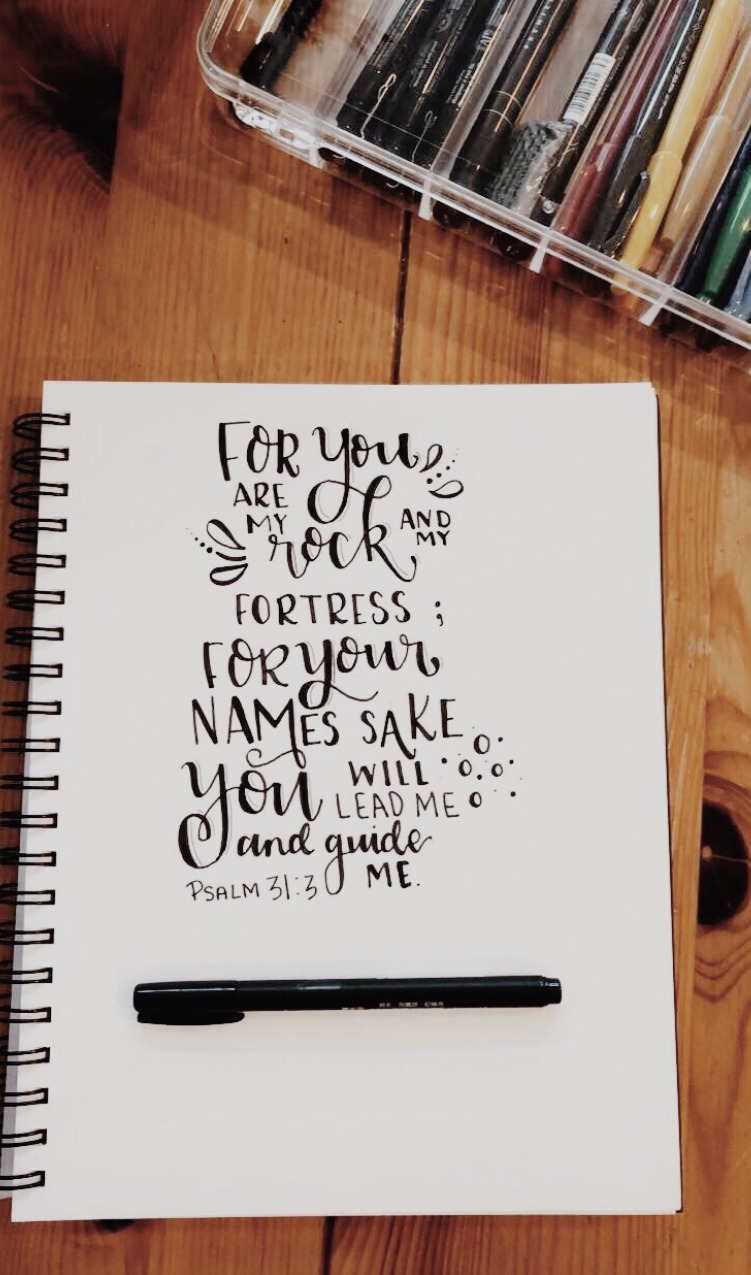 FOR you
ARE MY rock AND MY
FORTRESS ;
FOR your
NAMES SAKE
you WILL
LEAD ME
and guide
ME.
PSALM 31:3